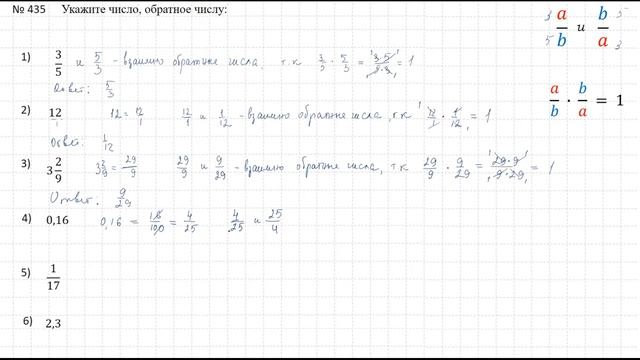 № 435 Укажите число, обратное числу:
3 a/b и b/a 5
5 3
1) 3/5 и 5/3 - взаимно обратные числа. т.к 3/5 · 5/3 = 3·5/5·3 = 1
Ответ: 5/3
a/b · b/a = 1
2) 12 12 = 12/1 12/1 и 1/12 - взаимно обратные числа, т.к 12/1 · 1/12 = 1
Ответ: 1/12
3) 3 2/9 3 2/9 = 29/9 29/9 и 9/29 - взаимно обратные числа, т.к 29/9 · 9/29 = 29·9/9·29 = 1
Ответ. 9/29
4) 0,16 0,16 = 16/100 = 4/25 4/25 и 25/4
5) 1/17
6) 2,3